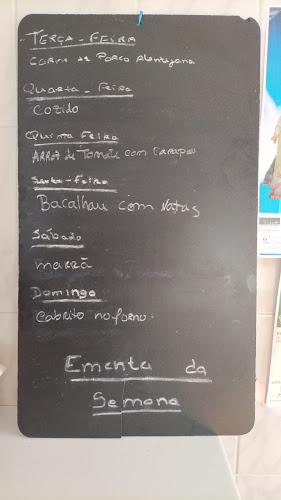 Terça-Feira
Carne de Porco Alentejana
Quarta-Feira
Cozido
Quinta Feira
Arroz de Tomate com Carapau
Sexta-Feira
Bacalhau com Natas
Sabado
marrã
Domingo
Cabrito no forno.
Ementa da
Semana